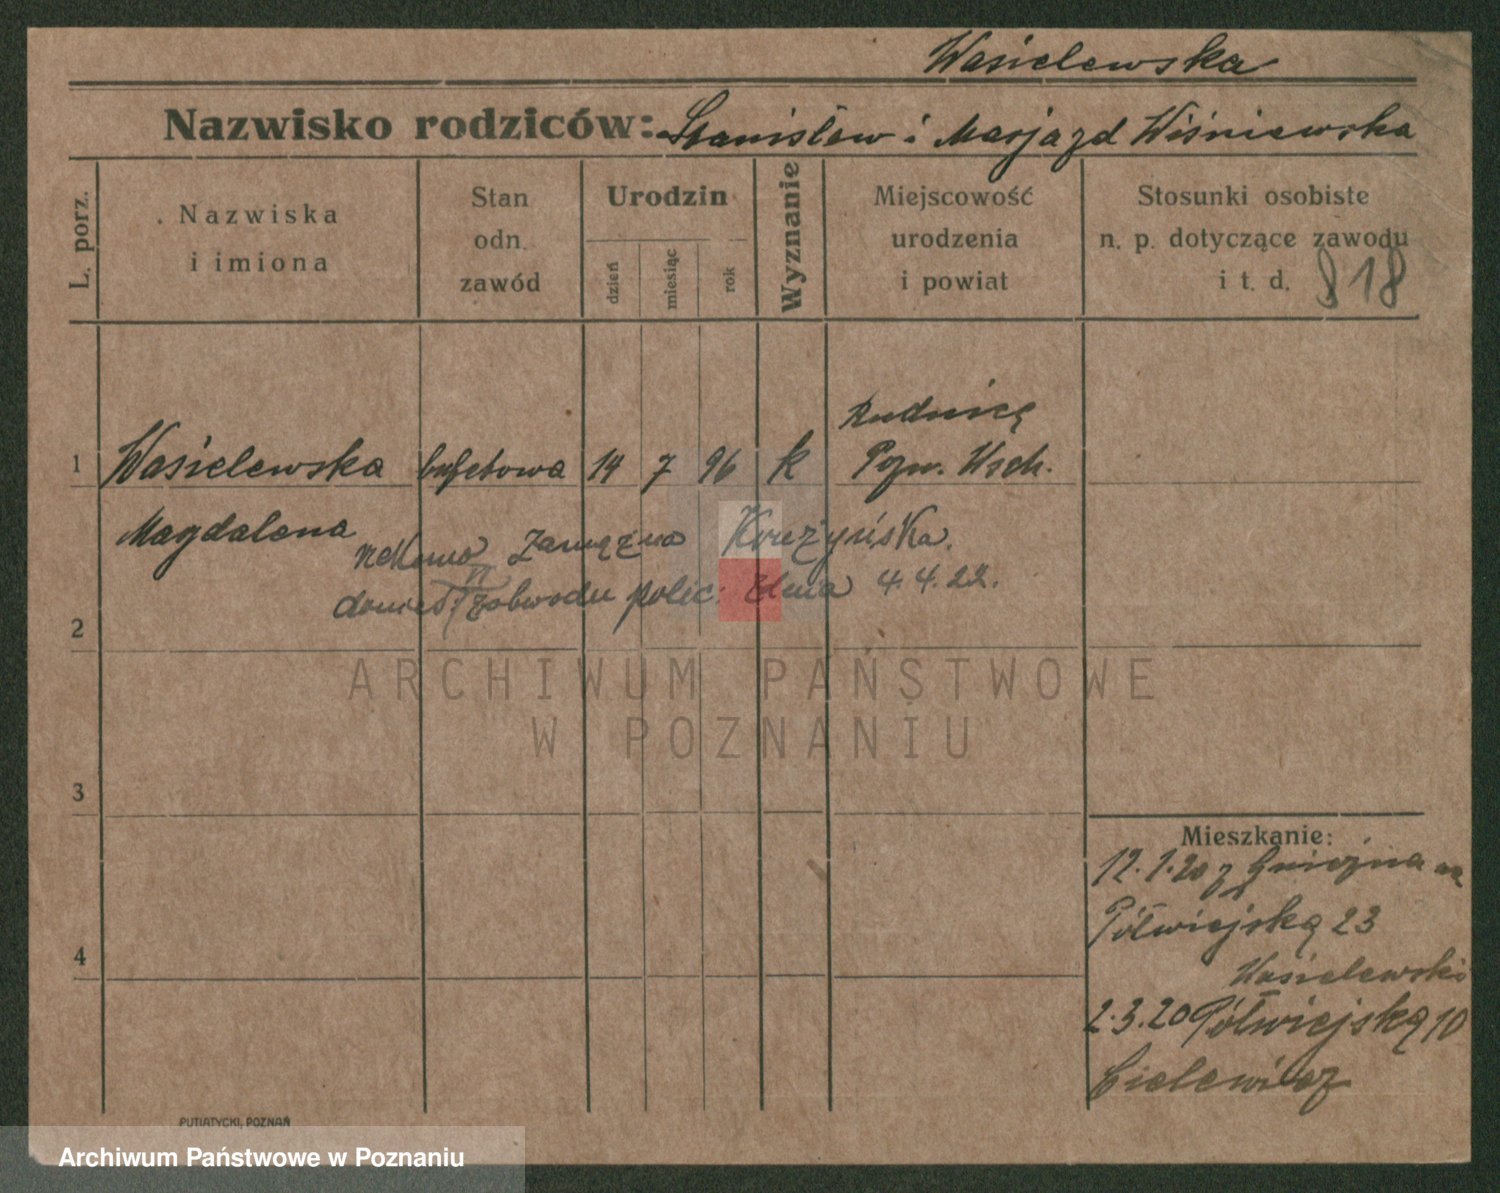 Wasielewska
Nazwisko rodziców: Stanisław i Marja zd Wiśniewska
L. porz.
Nazwiska
i imiona
Stan
odn.
zawód
Urodzin
dzień
miesiąc
rok
Wyznanie
Miejscowość
urodzenia
i powiat
Stosunki osobiste
n. p. dotyczące zawodu
i t. d.
818
Rudnicę
1 Wasielewska bufetowa 14 7 96 k Pozn. Wsch.
Magdalena
zamężna Krużyńska.
VI
obwodu polic. dnia 4.4.22.
2
3
4
Mieszkanie:
12.1.20 z Gniezna na
Półwiejską 23
Wasielewski
2.3.20 Półwiejską 10
Cielewicz
PUTIATYCKI, POZNAŃ
ARCHIWUM PAŃSTWOWE
W POZNANIU
Archiwum Państwowe w Poznaniu